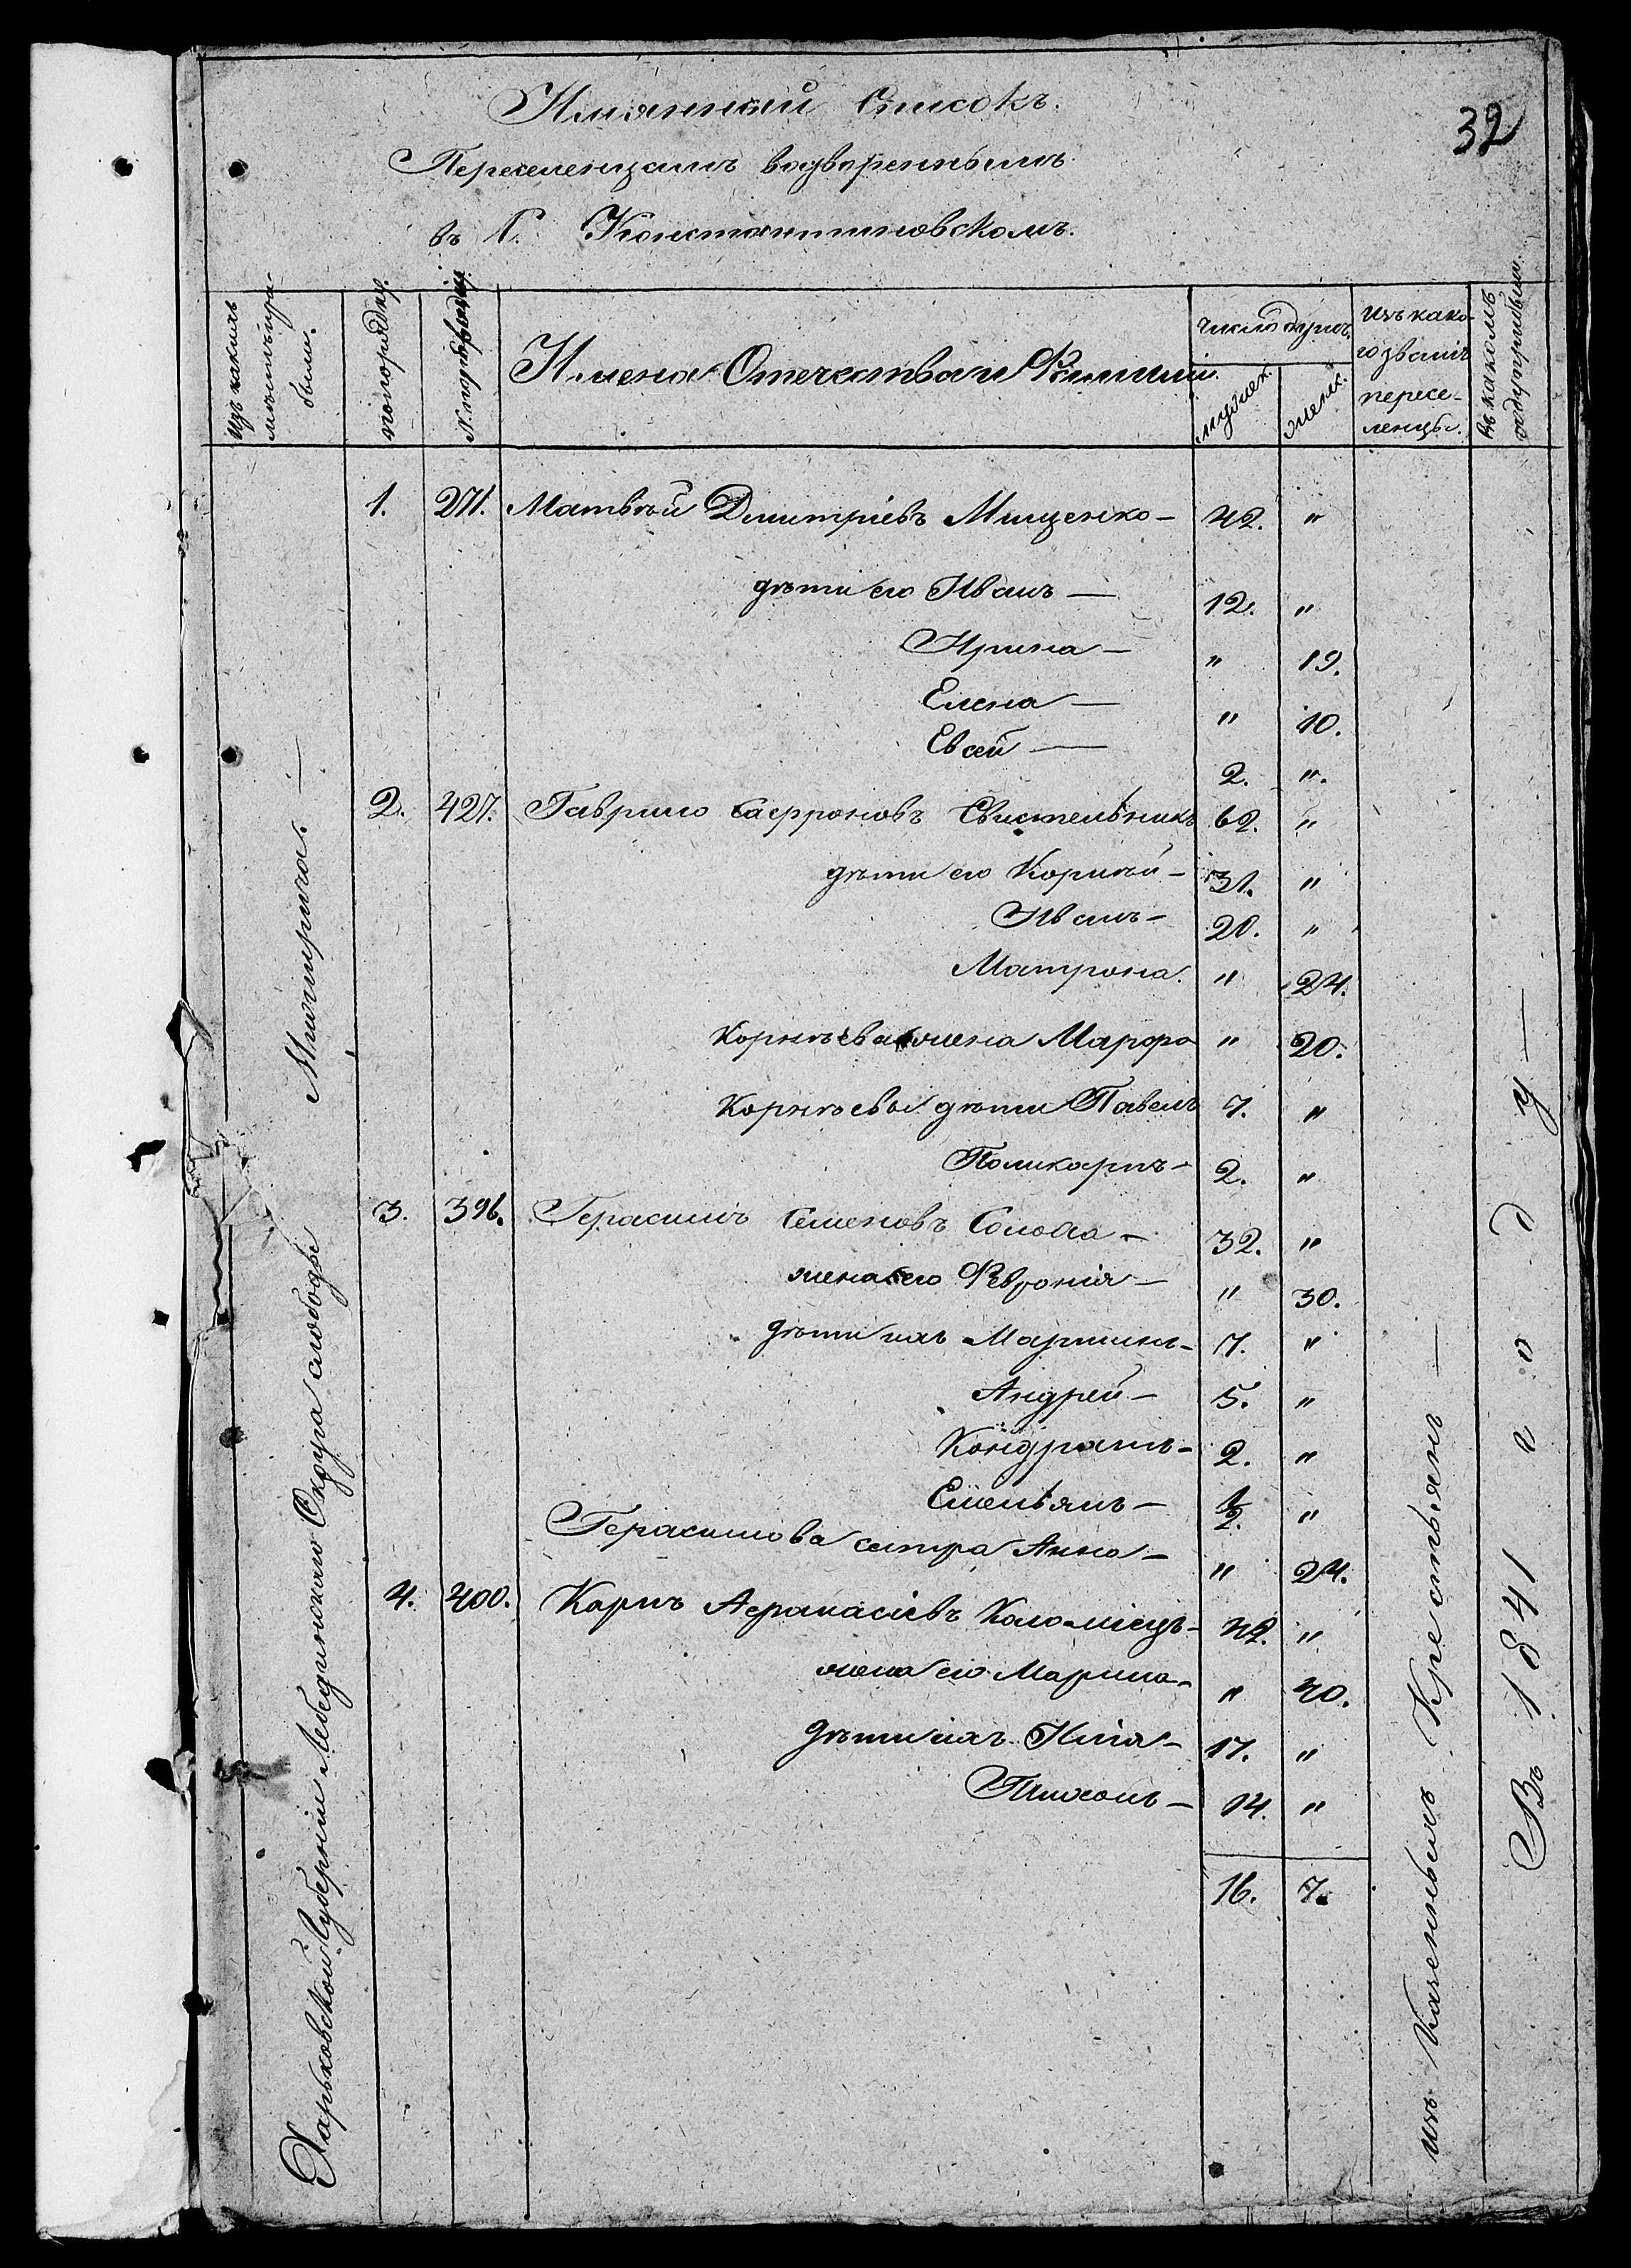 32
Имянный Список.
Переселенцамъ водвореннымъ
въ С. Константиновскомъ.
Изъ какихъ
мѣстъ пра-
были.
по порядку.
N. по
Имена Отечества и Фамилии.
Число душъ.
мужеск.
женс.
Изъ како-
го званія
пересе-
ленцы.
Въ какомъ
году прибыли.
Харьковской Губерніи Лебединскаго Округа слободы Мижирича. —
изъ Казенныхъ Крестьянъ —
Въ 1841 году —
1. 271. Матвѣй Дмитріевъ Мищенко — 42. "
дѣти его Иванъ — 12. "
Ирина — " 19.
Елена — " 10.
Евсей — 2. ".
2. 427. Гаврило Сафроновъ Свистельникъ 62. "
дѣти его Корнѣй — 31. "
Иванъ — 20. "
Матрона. " 24.
Корнѣева жена Марфа " 20.
Корнѣевы дѣти Павелъ 7. "
Поликарпъ — 2. "
3. 396. Герасимъ Семеновъ — 32. "
жена его Февронія — " 30.
дѣти ихъ Мартинъ — 7. "
Андрей — 5. "
Кондратъ — 2. "
Емельянъ — 1/2. "
Герасимова сестра Анна — " 24.
4. 400. Карпъ Афанасіевъ Коломіецъ — 42. "
жена его Марина — " 40.
дѣти ихъ Илія — 17. "
Тихонъ — 14. "
16. 7.